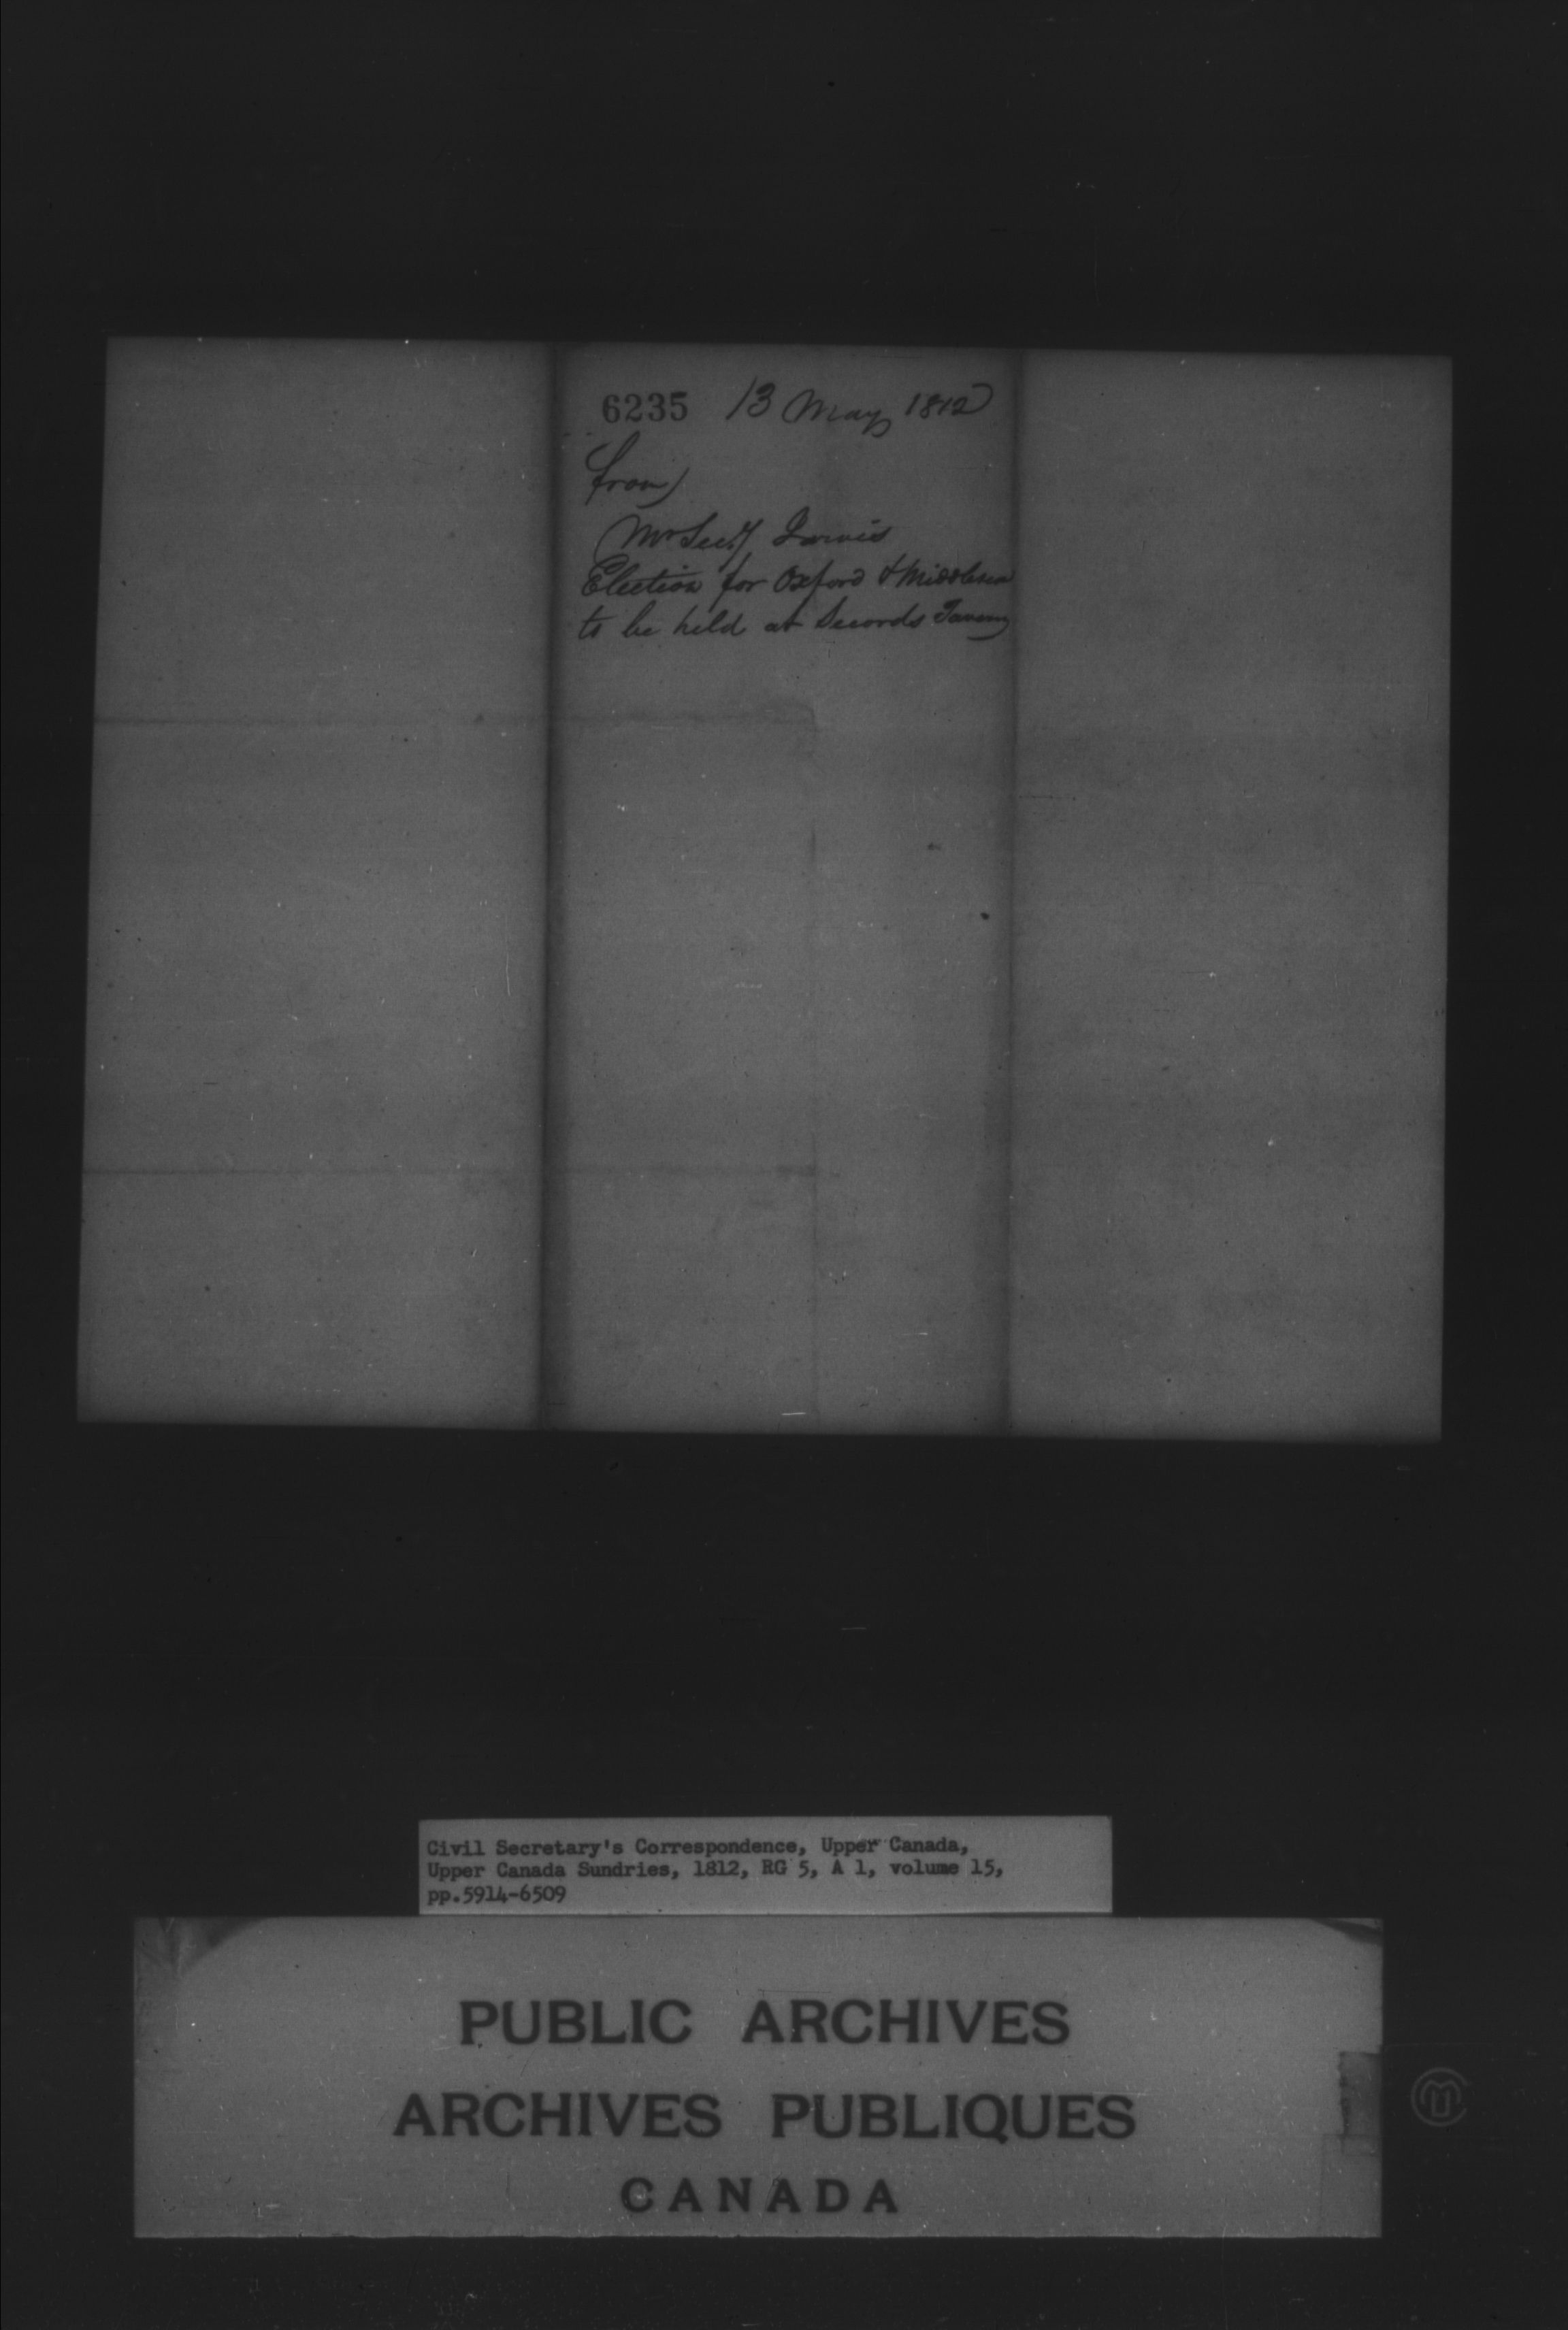 6235 13 May 1812
from
Mr Secy Jarvis
Election for Oxford & Middlesex
to be held at Secords Tavern
Civil Secretary's Correspondence, Upper Canada,
Upper Canada Sundries, 1812, RG 5, A 1, volume 15,
pp.5914-6509
PUBLIC ARCHIVES
ARCHIVES PUBLIQUES
CANADA